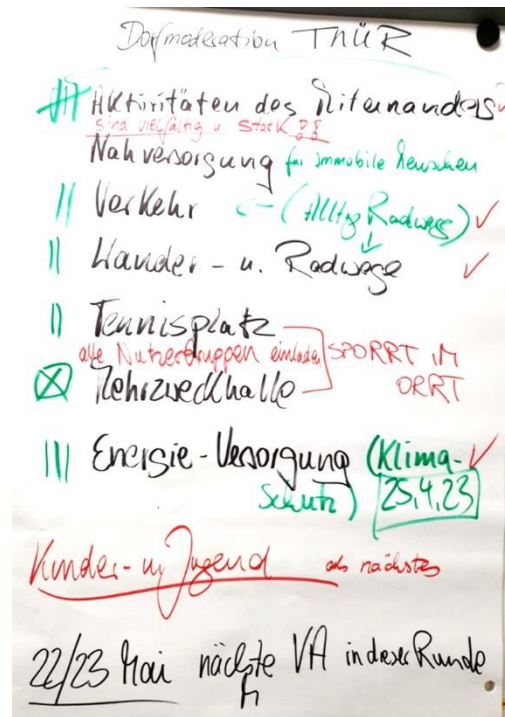 Dorfmoderation THÜR
Aktivitäten des Miteinanders
sind vielfältig u. stark
Nahversorgung für immobile Menschen
Verkehr ← (Alltag Radwege) ✓
Wander- u. Radwege ✓
Tennisplatz
alle Nutzergruppen einladen SPORRT IM
Mehrzweckhalle ORRT
Energie-Versorgung (Klima- ✓
Schutz) 25.4.23
Kinder- u. Jugend als nächstes
22/23 Mai nächste VA in dieser Runde